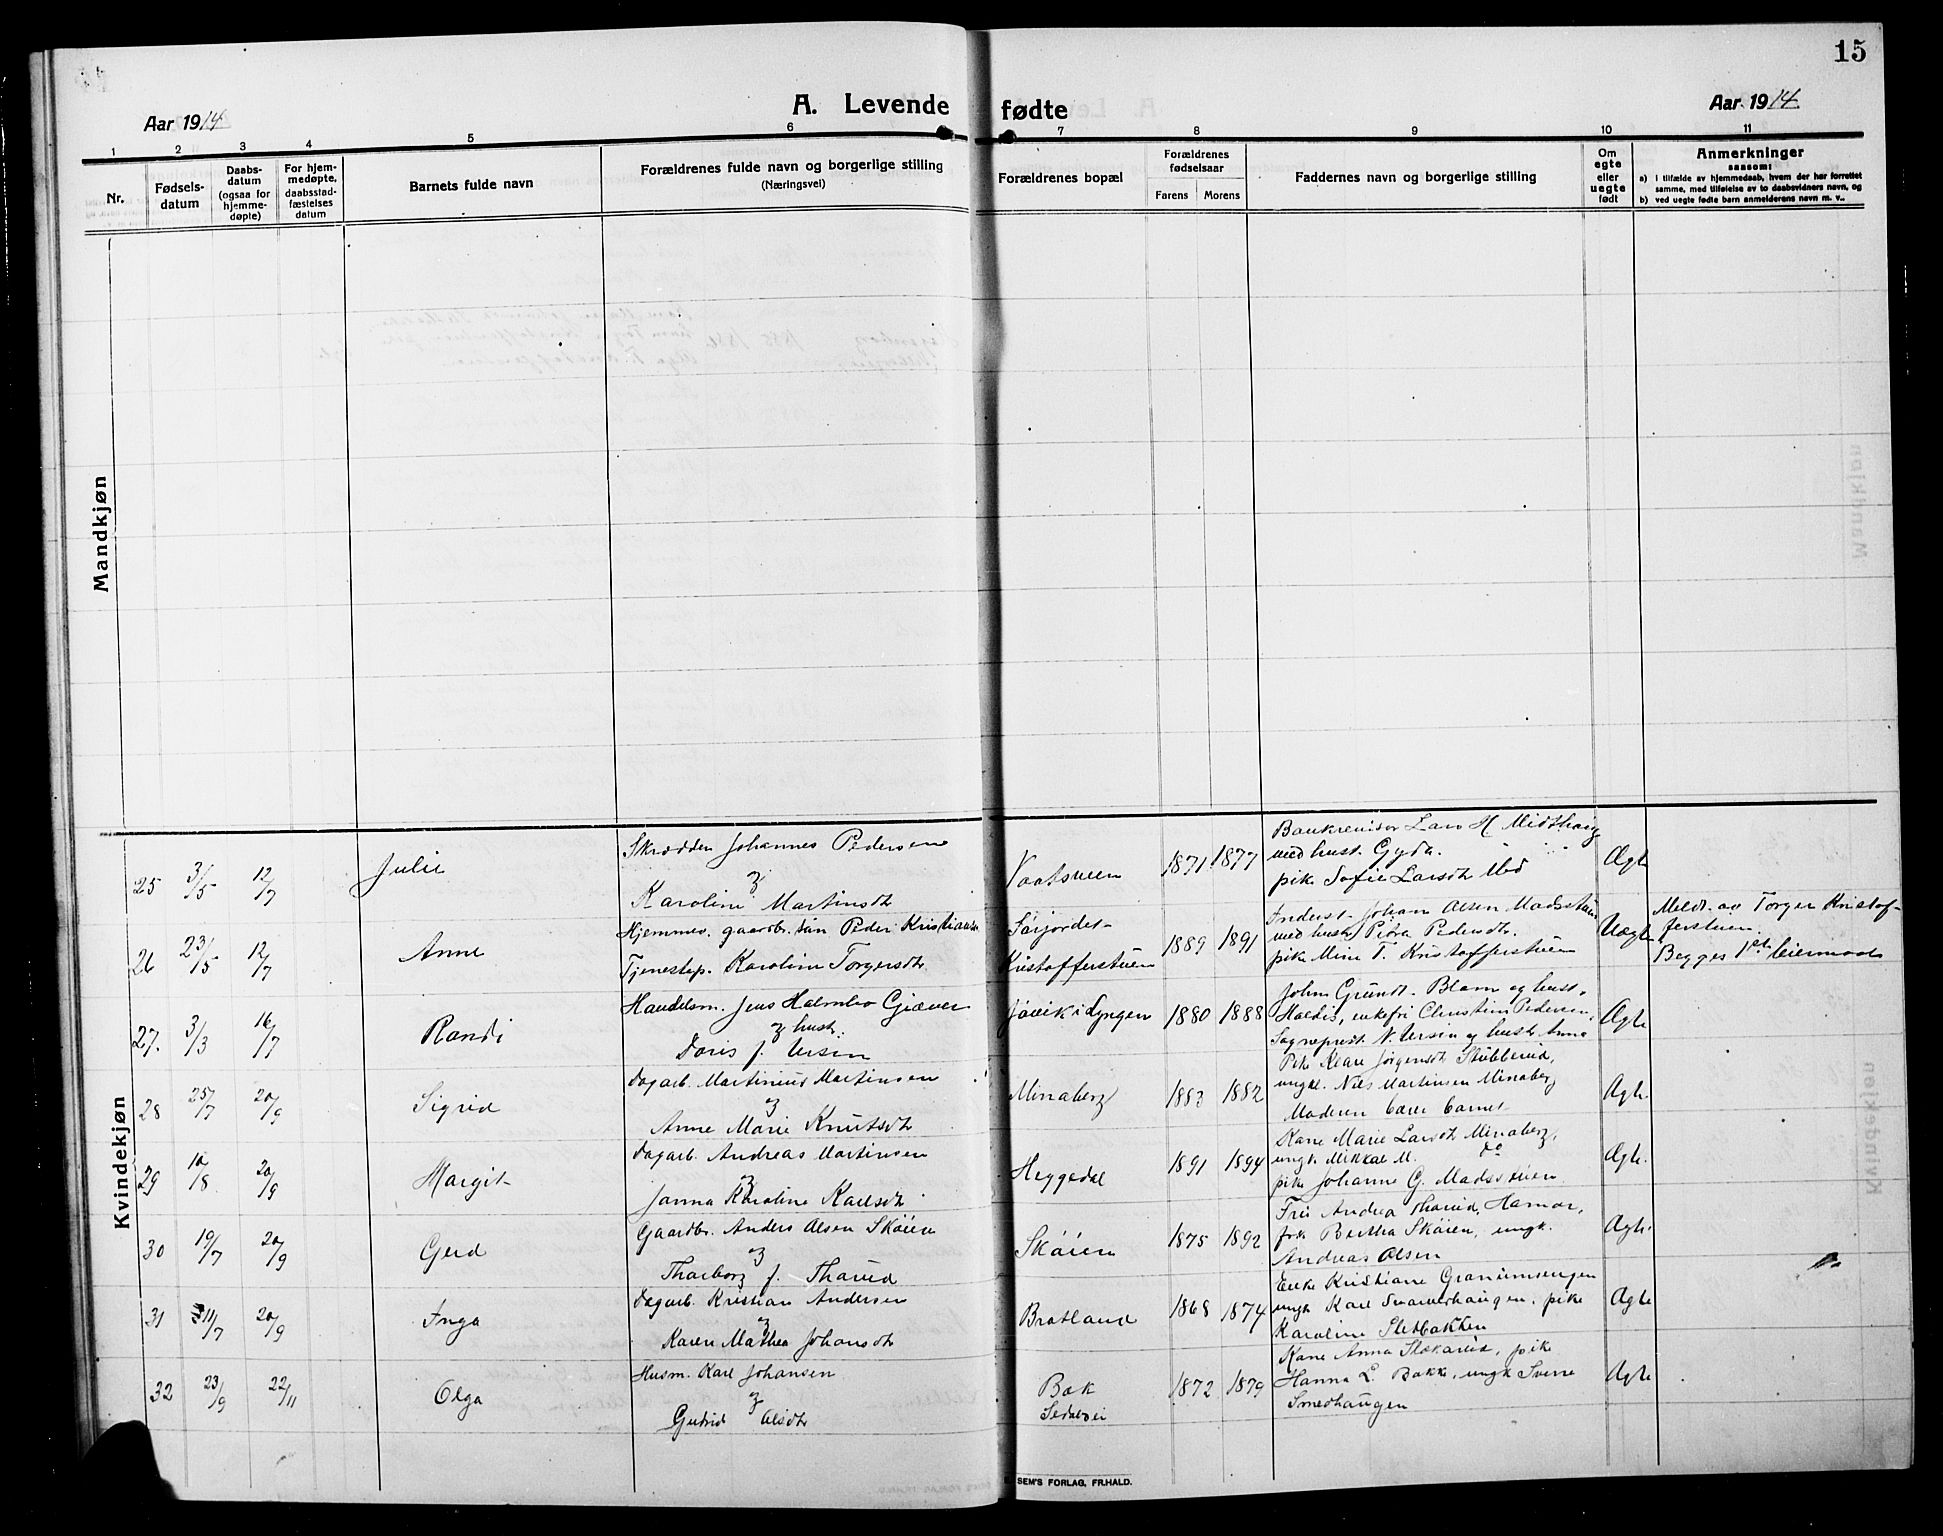 15
Aar 1914
A. Levende fødte
Aar 1914
1 2 3 4 5 6 7 8 9 10 11
Nr.
Fødsels-
datum
Daabs-
datum
(ogsaa for
hjemme-
døpte)
For hjem-
medøpte,
daabsstad-
fæstelses
datum
Barnets fulde navn
Forældrenes fulde navn og borgerlige stilling
(Næringsvei)
Forældrenes bopæl
Forældrenes
fødselsaar
Farens Morens
Faddernes navn og borgerlige stilling
Om
egte
eller
uegte
født
Anmerkninger
saasom:
a) i tilfælde av hjemmedaab, hvem der har forrettet
samme, med tilføielse av to daabsvidners navn, og
b) ved uegte fødte barn anmelderens navn m. v..
Mandkjøn
Kvindekjøn
25 3/5 12/7 Julie
Skrædder Johannes Pedersen
og
Karoline Martinsdtr
1871 1877
Bankrevisor Lars H. Midthaug
med hust. Gyda.
pike Sofie Larsdtr
Ægte
26 23/5 12/7 Anne
Hjemmev. gaardbr. søn Peder Kristiansen
Tjenestep. Karoline Torgersdtr
Sørjordet
Kristofferstuen
1889 1891
Inderst Johan Olsen Madsstuen
med hust. Petra Pedersdtr.
pike Mina T. Kristofferstuen
Uægte
Meldt av Torger Kristof-
ferstuen.
Begges 1ste leiermaal
27. 3/3 16/7 Randi
Handelsm. Jens Halmbo Gjæver
og hust.
Doris f. Ursin
Jøvik i Lyngen
1880 1888
John Grundt. Blom og hust.
Haldis, enkefru Christine Pedersen,
Sogneprest N. Ursin og hust. Anna
Ægte
28 25/7 20/9 Sigrid
Dagarb. Martinius Martinsen
og
Anne Marie Knutsdtr
Minaberg
1883 1882
Pike Klare Jørgensdtr Stubberud,
ungk. Nils Martinsen Minaberg
Moderen bærer barnet
Ægte.
29 10/8 20/9 Margit
Dagarb. Andreas Martinsen
og
Janna Karoline Karlsdtr
Heggedal
1891 1894
Kone Marie Larsdtr Minaberg,
ungk. Mikkal M. do
pike Johanne G. Madsstuen
Ægte.
30 19/7 20/9 Gerd
Gaardbr. Anders Olsen Skøien
og
Tharborg f. Tharud
Skøien
1875 1892
Frk. Andrea Tharud, Hamar,
frk. Bertha Skøien, ungk.
Andreas Olsen
Ægte.
31 11/7 20/9 Inga
Dagarb. Kristian Andersen
og
Karen Mathea Johansdtr
Bratland
1868 1874
Enke Kristiane Granumsengen
ungk. Karl Svarverhaugen, pike
Karoline Sletbakken
Ægte
32 23/9 22/11 Olga
Husm. Karl Johansen
og
Gudrid Olsdtr
Bak
1872 1879
Kone Anna Stokarud, pike
Hanna L. Bakke, ungk. Sverre
Smedhaugen
Ægte
SEM'S FORLAG, FR.HALD.